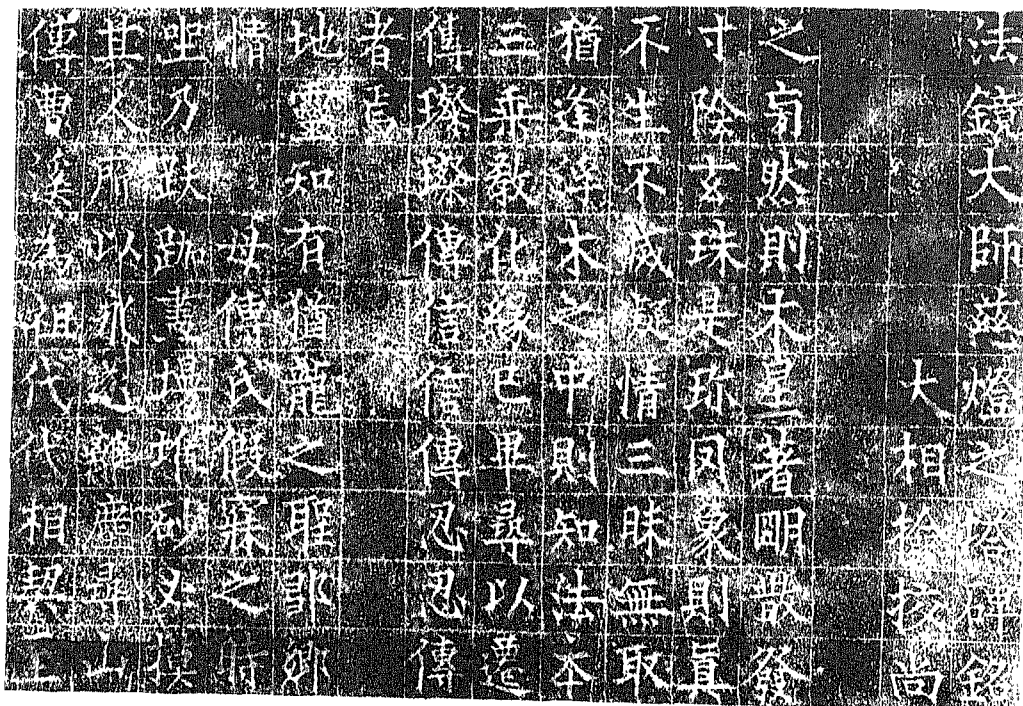 法鏡大師慈燈之塔碑銘
大相檢校尚
之旁然則木星著明散發
寸陰玄珠是珎罔象則眞
不生不滅情三昧無取
猶逢浮木之中則知法本
三乘教化緣已畢尋以遷
傳璨璨傳信信傳忍忍傳
者焉
地靈知有猶龍之聖郎鄉
情母傳氏假寐之時
坐乃趺跏畫墁堆砂必模
其人所以山
傳曹溪為祖代代相契至